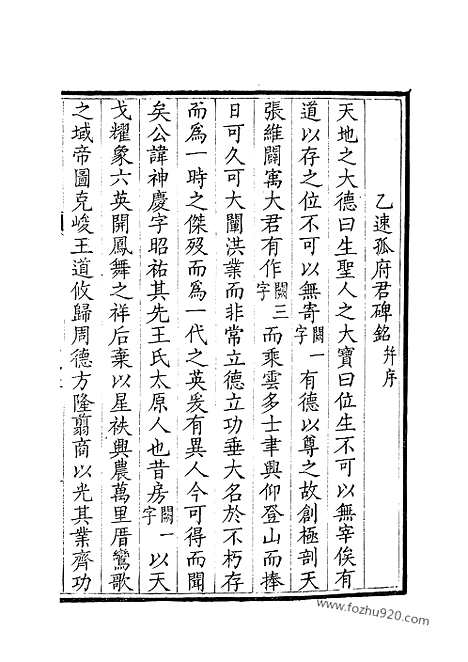 乙速孤府君碑銘并序
天地之大德曰生聖人之大寶曰位生不可以無宰俟有
道以存之位不可以無寄闕一字有德以尊之故創極剖天
張維闢寓大君有作闕三字而乘雲多士聿興仰登山而捧
日可久可大闡洪業而非常立德立功垂大名於不朽存
而爲一時之傑歿而爲一代之英爰有異人今可得而聞
矣公諱神慶字昭祐其先王氏太原人也昔房闕一字以天
戈耀象六英開鳳舞之祥后棄以星袟興農萬里厝鸞歌
之域帝圖克峻王道攸歸周德方隆翦商以光其業齊功
www.fozhu920.com